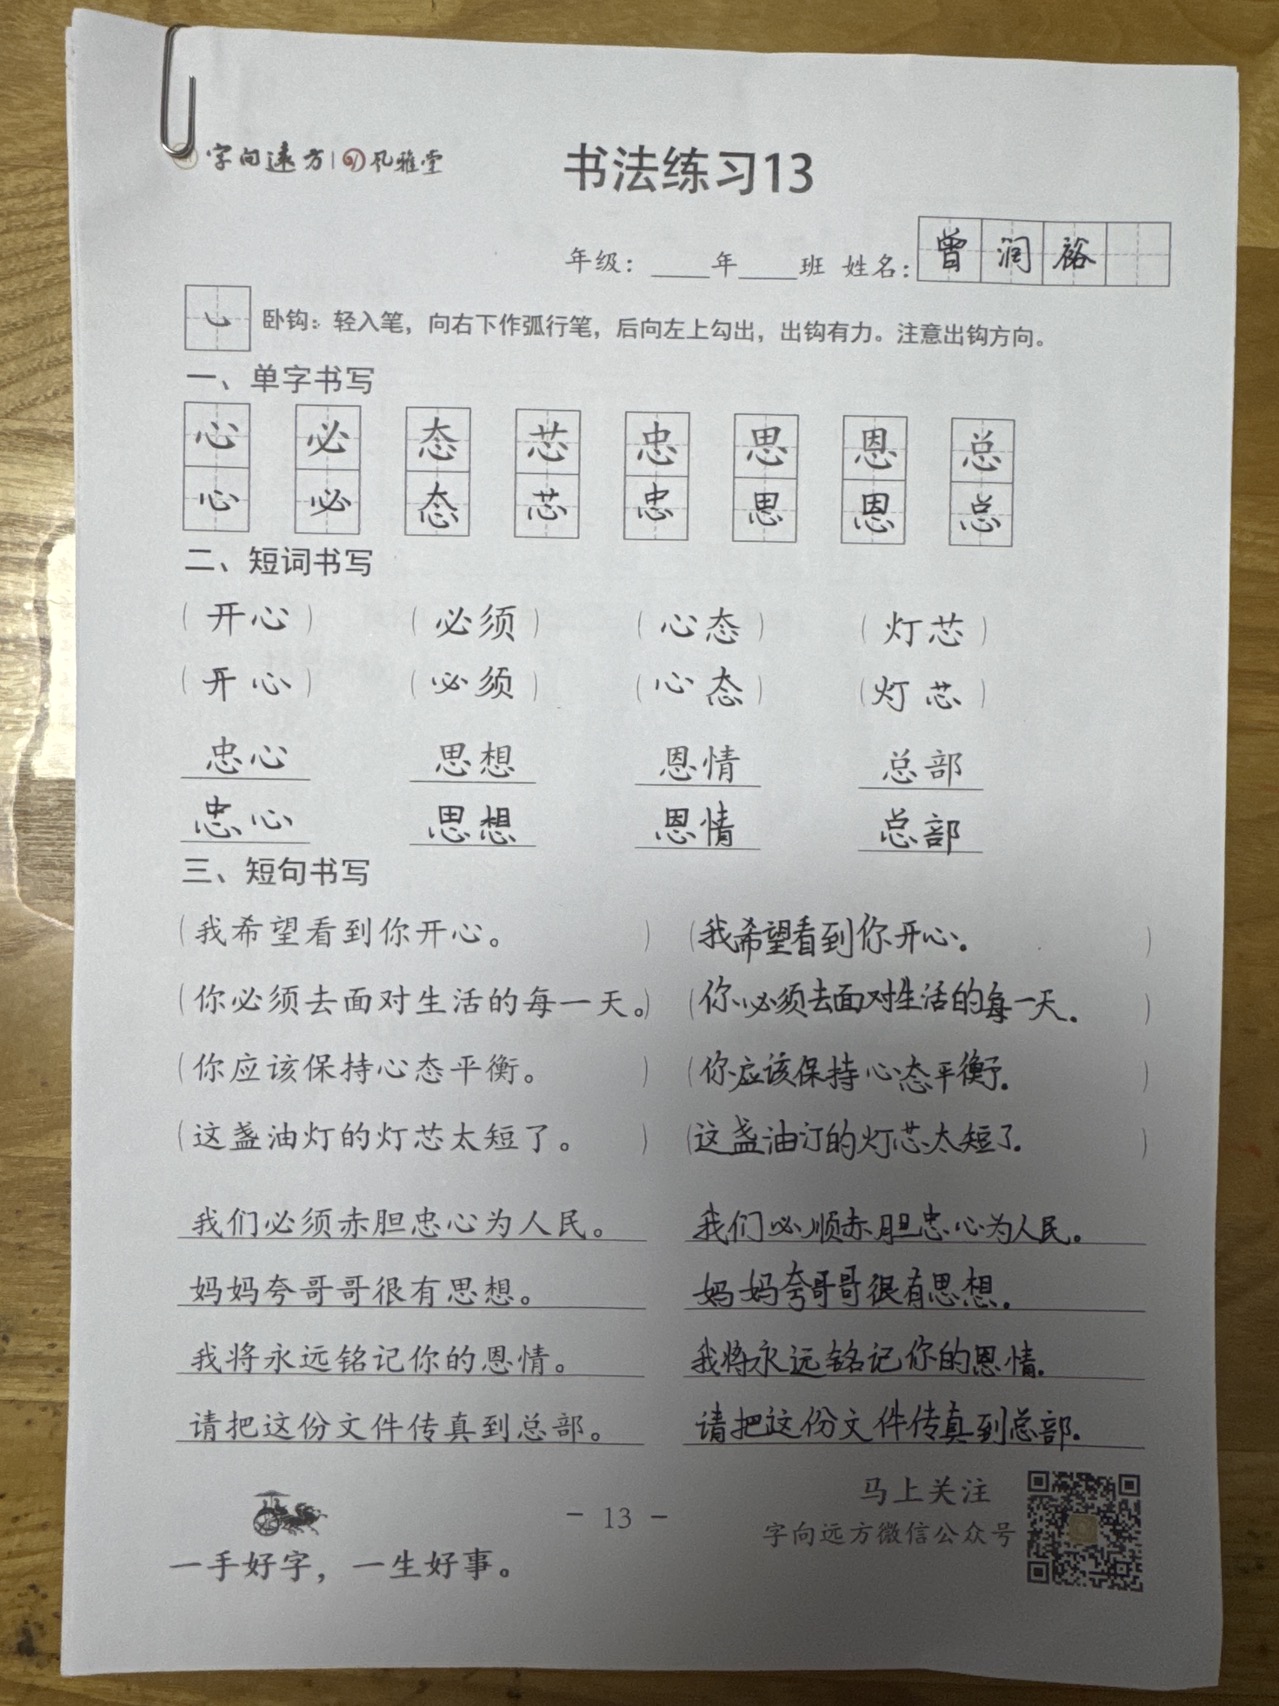 字向远方 | 风雅堂
书法练习13
年级：____年____班 姓名：曾润裕
卧钩：轻入笔，向右下作弧行笔，后向左上勾出，出钩有力。注意出钩方向。
一、单字书写
心 必 态 芯 忠 思 恩 总
心 必 态 芯 忠 思 恩 总
二、短词书写
（开心） （必须） （心态） （灯芯）
（开心） （必须） （心态） （灯芯）
忠心 思想 恩情 总部
忠心 思想 恩情 总部
三、短句书写
（我希望看到你开心。） （我希望看到你开心.）
（你必须去面对生活的每一天。） （你必须去面对生活的每一天.）
（你应该保持心态平衡。） （你应该保持心态平衡.）
（这盏油灯的灯芯太短了。） （这盏油汀的灯芯太短了.）
我们必须赤胆忠心为人民。 我们必顺赤胆忠心为人民。
妈妈夸哥哥很有思想。 妈妈夸哥哥很有思想.
我将永远铭记你的恩情。 我将永远铭记你的恩情.
请把这份文件传真到总部。 请把这份文件传真到总部.
马上关注
- 13 -
字向远方微信公众号
一手好字，一生好事。